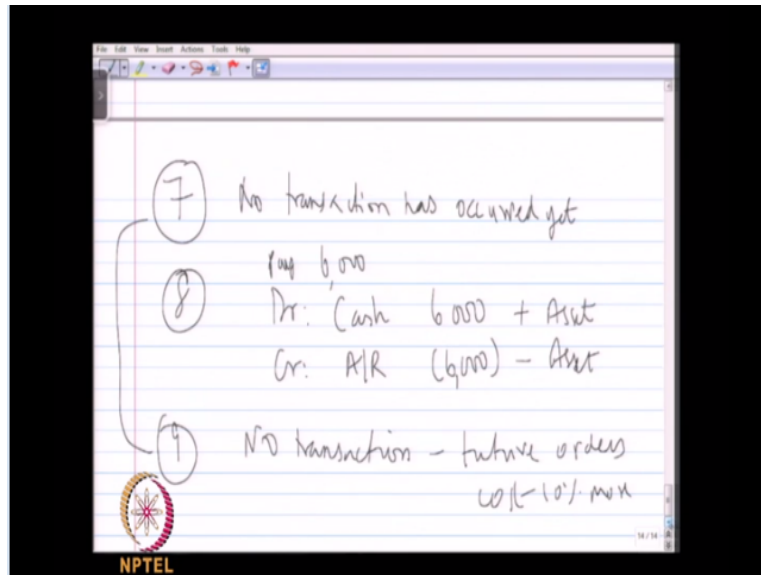 File Edit View Insert Actions Tools Help
7 No transaction has occurred yet
6,000
8 Dr: Cash 6000 + Asset
Cr: A/R (6,000) - Asset
9 NO transaction - future orders
cost 10% more
14 / 14
NPTEL